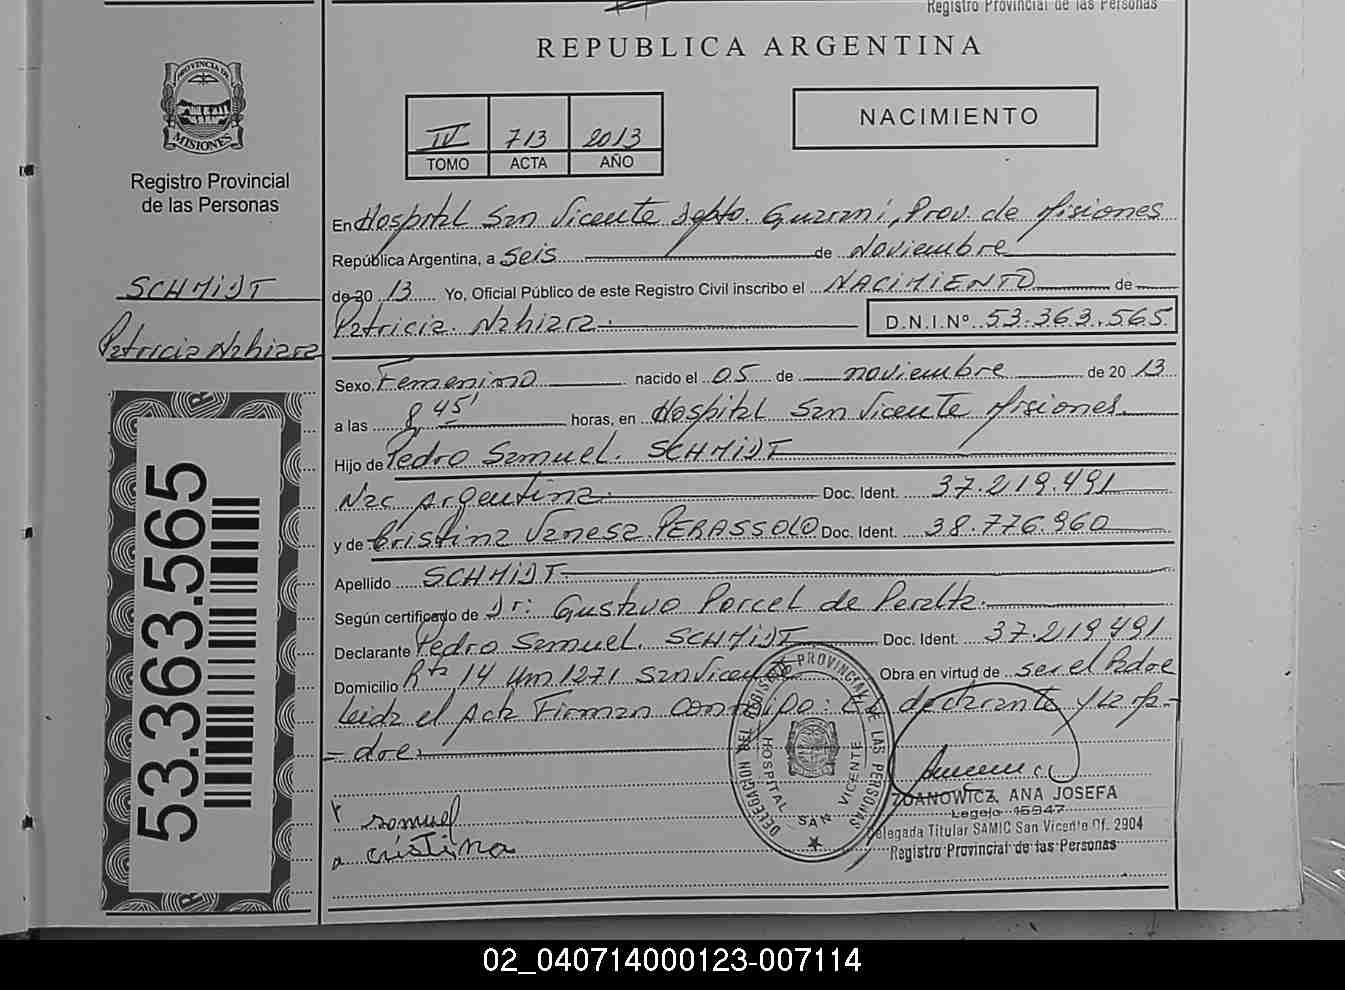 Registro Provincial de las Personas
REPUBLICA ARGENTINA
PROVINCIA DE
MISIONES
Registro Provincial
de las Personas
IV 713 2013
TOMO ACTA AÑO
NACIMIENTO
En Hospital San Vicente Depto. Guaraní, Prov. de Misiones
República Argentina, a seis de Noviembre
de 20 13 Yo, Oficial Público de este Registro Civil inscribo el NACIMIENTO de
Patricia Nahiara
D.N.I.Nº 53.363.565
SCHMIDT
Patricia Nahiara
53.363.565
Sexo Femenino nacido el 05 de noviembre de 20 13
a las 8,45' horas, en Hospital San Vicente Misiones.
Hijo de Pedro Samuel. SCHMIDT
Nac Argentina Doc. Ident. 37.219.491
y de Cristina Vanesa PERASSOLO Doc. Ident. 38.776.960
Apellido SCHMIDT
Según certificado de Dr: Gustavo Porcel de Peralta
Declarante Pedro Samuel. SCHMIDT Doc. Ident. 37.219.491
Domicilio Rta 14 Km 1271 San Vicente Obra en virtud de ser el Padre
Leida el Acta Firman conmigo: El declarante y la Ma-
=dre.
samuel
cristina
DELEGACION DEL REGISTRO PROVINCIAL DE LAS PERSONAS
HOSPITAL SAN VICENTE
ZDANOWICZ, ANA JOSEFA
Legajo 15947
Delegada Titular SAMIC San Vicente Of. 2904
Registro Provincial de las Personas
02_040714000123-007114